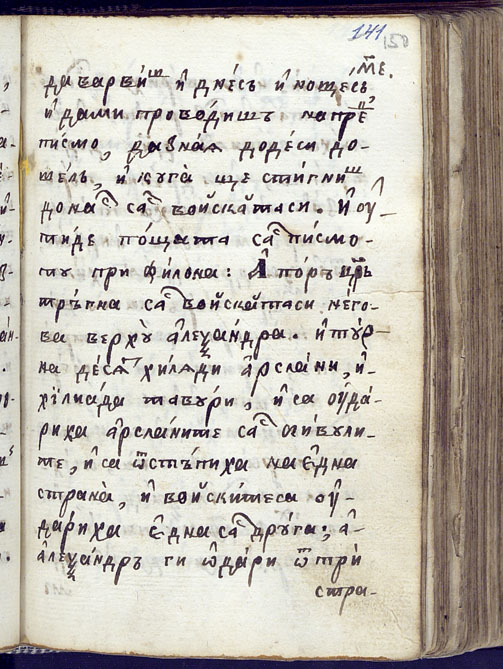 141
150
т҃е.
да варви́ш и҆ дне́съ и҆ ноще́съ
и҆ да ми прово́дишъ напре́
писмо, да зна́ѧ до де́си до-
шелъ, и҆ кꙋга̀ ще сти́гниш
до на́с са́с во́искѫтаси. и҆ ѹ҆-
тиде по́щата са́с пи́смо-
то при фи́лона: А҆ по́ръ цр҃ь
тръ́гна са́с во́искѫтаси него-
ва верхꙋ а҆леѯа́ндра. и҆ тꙋ́р-
на де́сѧт хи́лѧди а҆рсла́ни, и҆-
хи́лиада тавꙋ́ри, и҆ са ѹ҆да́-
риха а҆рсла́ните са́с ѻгивꙋли-
те, и҆ са ѿстъпиха на є҆дна
страна̀, и҆ во́иски́те са ѹ҆-
да́риха є҆дна са́с дрꙋ́га; а҆-
а҆леѯа́ндръ ги ѡ҆да́ри ѿ трѝ
стра-